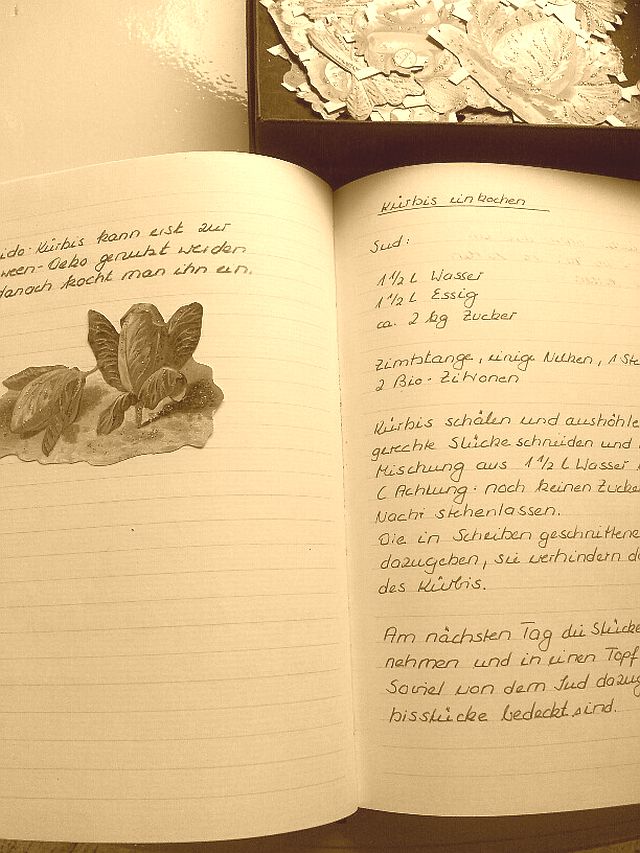 ido-Kürbis kann erst zur
ween-Deko genutzt werden
danach kocht man ihn ein.
Kürbis einkochen
Sud:
1 1/2 L Wasser
1 1/2 L Essig
ca. 2 kg Zucker
Zimtstange, einige Nelken, 1 Ste
2 Bio-Zitronen
Kürbis schälen und aushöhle
gerechte Stücke schneiden und
Mischung aus 1 1/2 L Wasser
( Achtung: noch keinen Zucke
Nacht stehenlassen.
Die in Scheiben geschnittene
dazugeben, sie verhindern da
des Kürbis.
Am nächsten Tag die Stücke
nehmen und in einen Topf
Soviel von dem Sud dazug
bisstücke bedeckt sind.